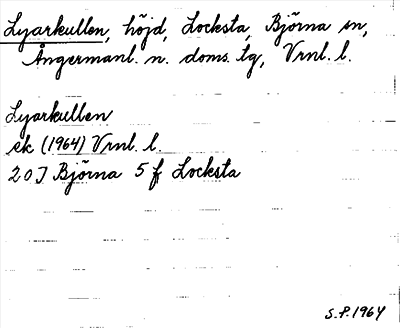 Lyarkullen, höjd, Locksta, Björna sn,
Ångermanl. n. doms. tg, Vrnl. l.
Lyarkullen
ek (1964) Vrnl. l.
20J Björna 5 f Locksta
S.P. 1964